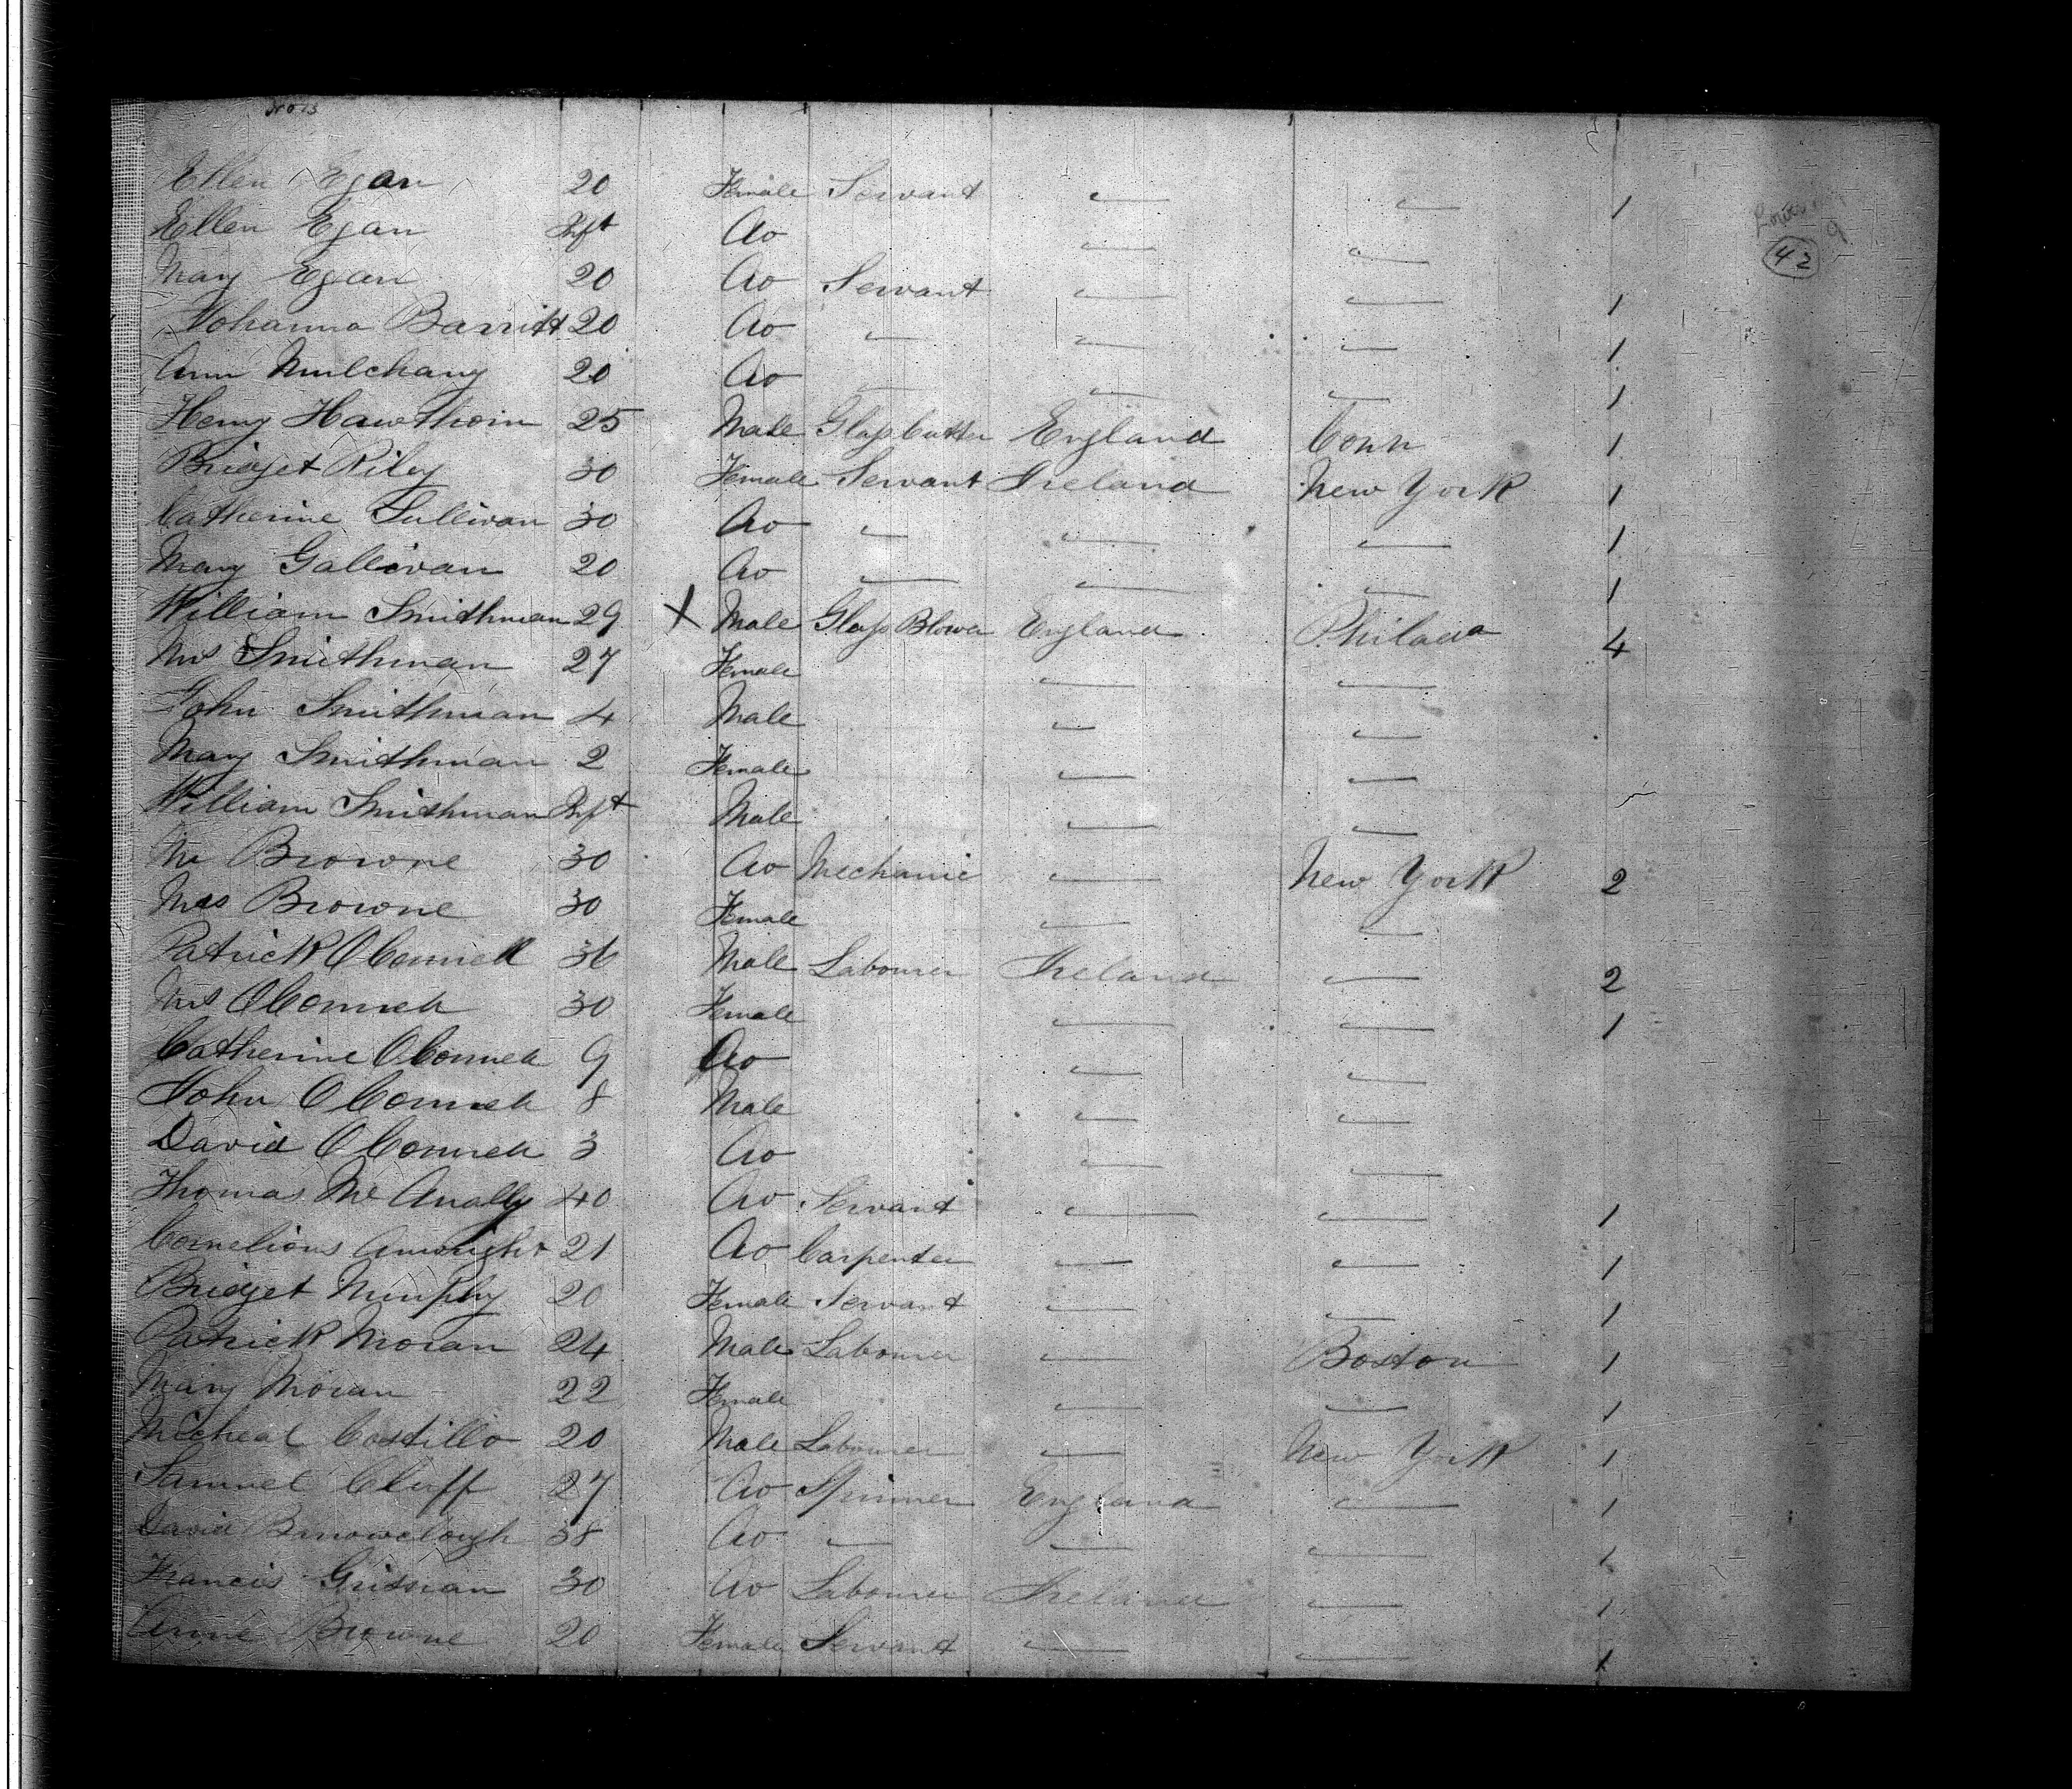 No 13
Ellen Egan 20 Female Servant — — 1
Ellen Egan Inft Do — —
Mary Egan 20 Do Servant — — 1
Johanna Barritt 20 Do — — — 1
Ann Mulchany 20 Do — — — 1
Henry Hawthorn 25 Male Glass Cutter England Conn 1
Bridget Riley 30 Female Servant Ireland New York 1
Catherine Sullivan 30 Do — — — 1
Mary Gallivan 20 Do — — — 1
William Smithman 29 X Male Glass Blower England Philada 4
Mrs Smithman 27 Female — —
John Smithman 4 Male — —
Mary Smithman 2 Female — —
William Smithman Inft Male — —
Mr Browne 30 Do Mechanic — New York 2
Mrs Browne 30 Female — —
Patrick OConnell 36 Male Labourer Ireland — 2
Mrs OConnell 30 Female — — 1
Catherine OConnell 9 Do — —
John OConnell 8 Male — —
David OConnell 3 Do — —
Thomas Mc Anally 40 Do Servant — — 1
Cornelious 21 Do Carpenter — — 1
Bridget Murphy 20 Female Servant — — 1
Patrick Moran 24 Male Labourer — Boston 1
Mary Moran 22 Female — — 1
Micheal Costillo 20 Male Labourer — New York 1
Samuel Cluff 27 Do Spinner England — 1
David 38 Do — — — 1
Francis 30 Do Labourer Ireland — 1
Anne Browne 20 Female Servant — — 1
9
42